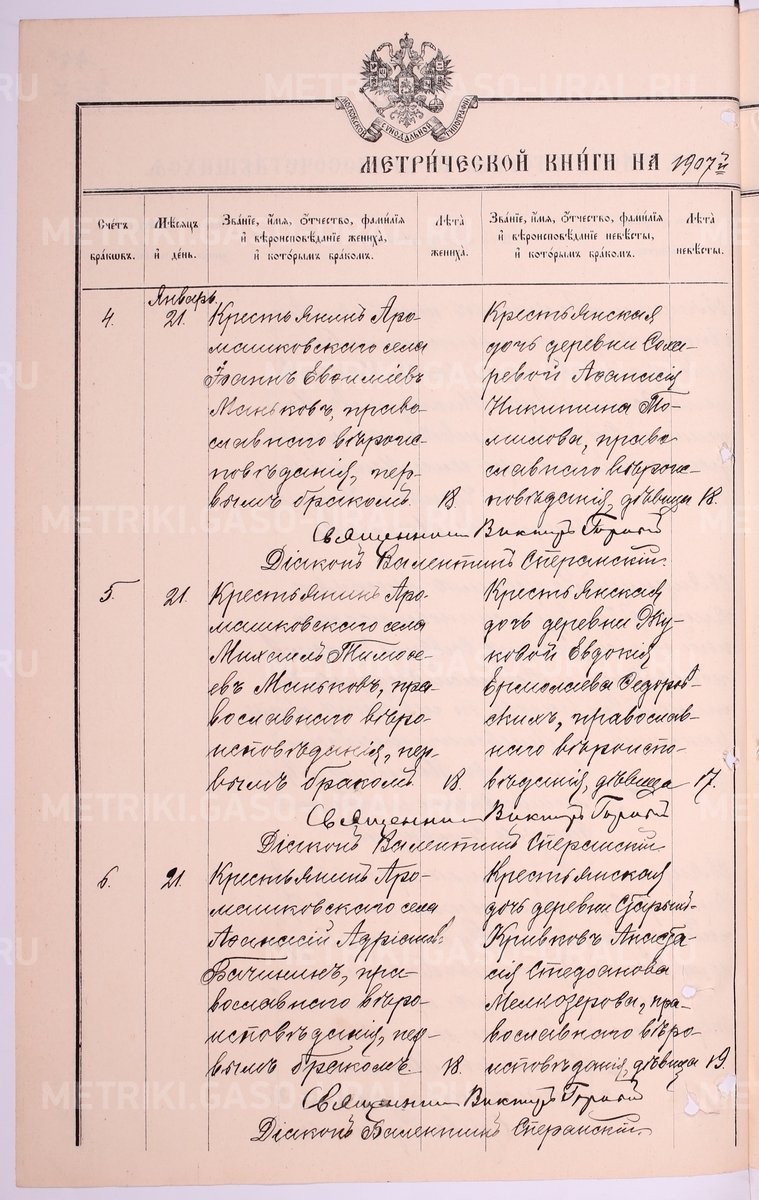 МОСКОВСКОЙ СѴНОДАЛЬНОЙ ТИПОГРАФІИ
МЕТРИ́ЧЕСКОЙ КНИ́ГИ НА 1907й
Сче́тъ бра́кωвъ.
Мѣ́сѧцъ и҆ де́нь.
Зва́нїе, и҆́мѧ, ѻ҆́тчество, фами́лїѧ и҆ вѣроисповѣ́данїе жениха̀, и҆ кото́рымъ бра́комъ.
Лѣ́та жениха̀.
Зва́нїе, и҆́мѧ, ѻ҆́тчество, фами́лїѧ и҆ вѣроисповѣ́данїе невѣ́сты, и҆ кото́рымъ бра́комъ.
Лѣ́та невѣ́сты.
Январь.
4.
21.
Крестьянинъ Аро-
машковскаго села
Іоаннъ Евѳиміевъ
Маньковъ, право-
славнаго вѣроис-
повѣданія, пер-
вымъ бракомъ.
18.
Крестьянская
дочь деревни
ревой Аѳанасія
Никитина То-
милова, право
славнаго вѣроис-
повѣданія, дѣвица
18.
Священникъ Викторъ
Діаконъ Валентинъ Сперанскій.
5.
21.
Крестьянинъ Аро-
машковскаго села
Михаилъ Тимоѳе-
евъ Маньковъ, пра-
вославнаго вѣро-
исповѣданія, пер-
вымъ бракомъ.
18.
Крестьянская
дочь деревни Жу-
ковой Евдокія
Ермолаева Ѳедоров-
скихъ, православ-
наго вѣроиспо-
вѣданія, дѣвица
17.
Священникъ Викторъ
Діаконъ Валентинъ Сперанскій.
6.
21.
Крестьянинъ Аро-
машковскаго села
Аѳанасій Адріанов:
Бачининъ, пра-
вославнаго вѣро-
исповѣданія, пер-
вымъ бракомъ.
18.
Крестьянская
дочь деревни Старый-
Кривковъ Анаста-
сія Стефанова
Мелкозерова, пра-
вославнаго вѣро-
исповѣданія, дѣвица
19.
Священникъ Викторъ
Діаконъ Валентинъ Сперанскій.
METRIKI.GASO-URAL.RU